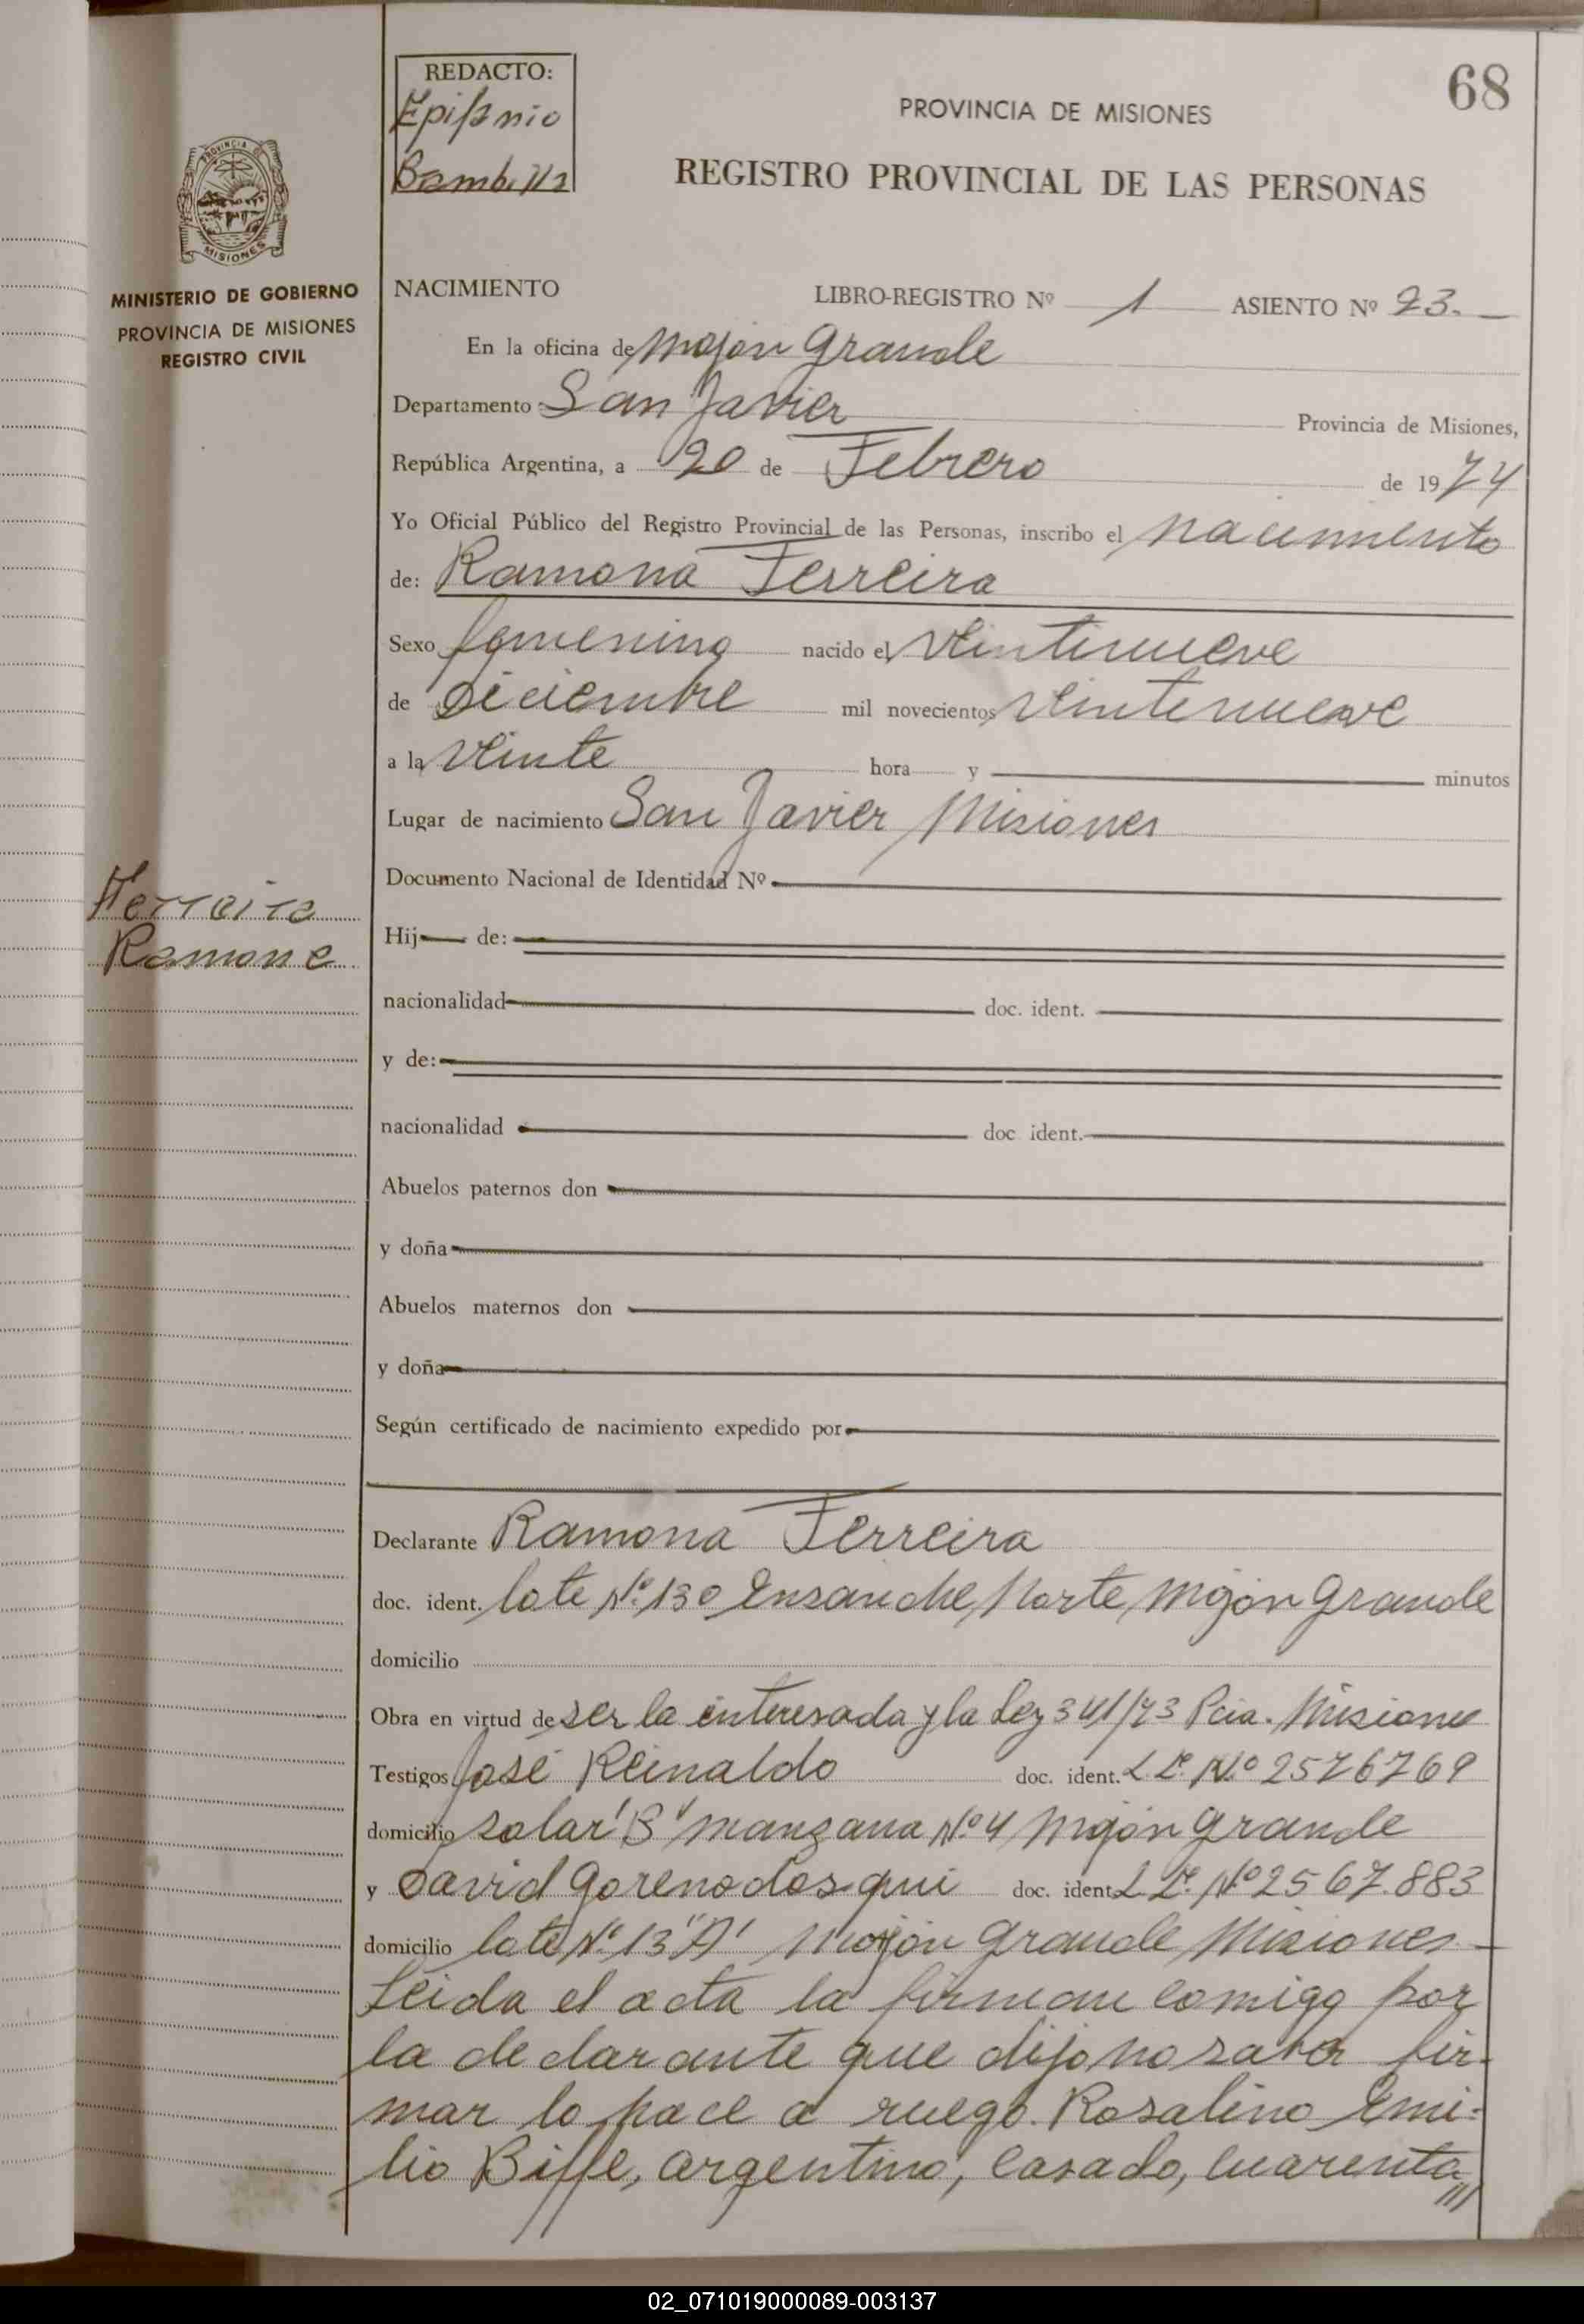 68
REDACTO:
Epifanio
Bambilla
PROVINCIA DE MISIONES
REGISTRO PROVINCIAL DE LAS PERSONAS
PROVINCIA DE
MISIONES
MINISTERIO DE GOBIERNO
PROVINCIA DE MISIONES
REGISTRO CIVIL
NACIMIENTO LIBRO-REGISTRO Nº 1 ASIENTO Nº 23.
En la oficina de Mojon Grande
Departamento San Javier Provincia de Misiones,
República Argentina, a 20 de Febrero de 1974
Yo Oficial Público del Registro Provincial de las Personas, inscribo el nacimiento
de: Ramona Ferreira
Sexo femenino nacido el veintinueve
de Diciembre mil novecientos veintenueve
a la veinte hora y minutos
Lugar de nacimiento San Javier Misiones
Documento Nacional de Identidad Nº
Ferreira
Ramona
Hij de:
nacionalidad doc. ident.
y de:
nacionalidad doc ident.
Abuelos paternos don
y doña
Abuelos maternos don
y doña
Según certificado de nacimiento expedido por
Declarante Ramona Ferreira
doc. ident. lote Nº 130 Ensanche Norte Mojon Grande
domicilio
Obra en virtud de ser la interesada y la Ley 341/73 Pcia. Misiones
Testigos José Reinaldo doc. ident. L.E. Nº 2576769
domicilio solar "B" manzana Nº 4 Mojon Grande
y David doc. ident. L.E. Nº 2567.883
domicilio lote Nº 13 "A" Mojon Grande Misiones
Leida el acta la firman comigo por
la declarante que dijo no saber fir-
mar lo hace a ruego. Rosalino Emi-
lio Biffe, argentino, casado, cuarenta ///
02_071019000089-003137